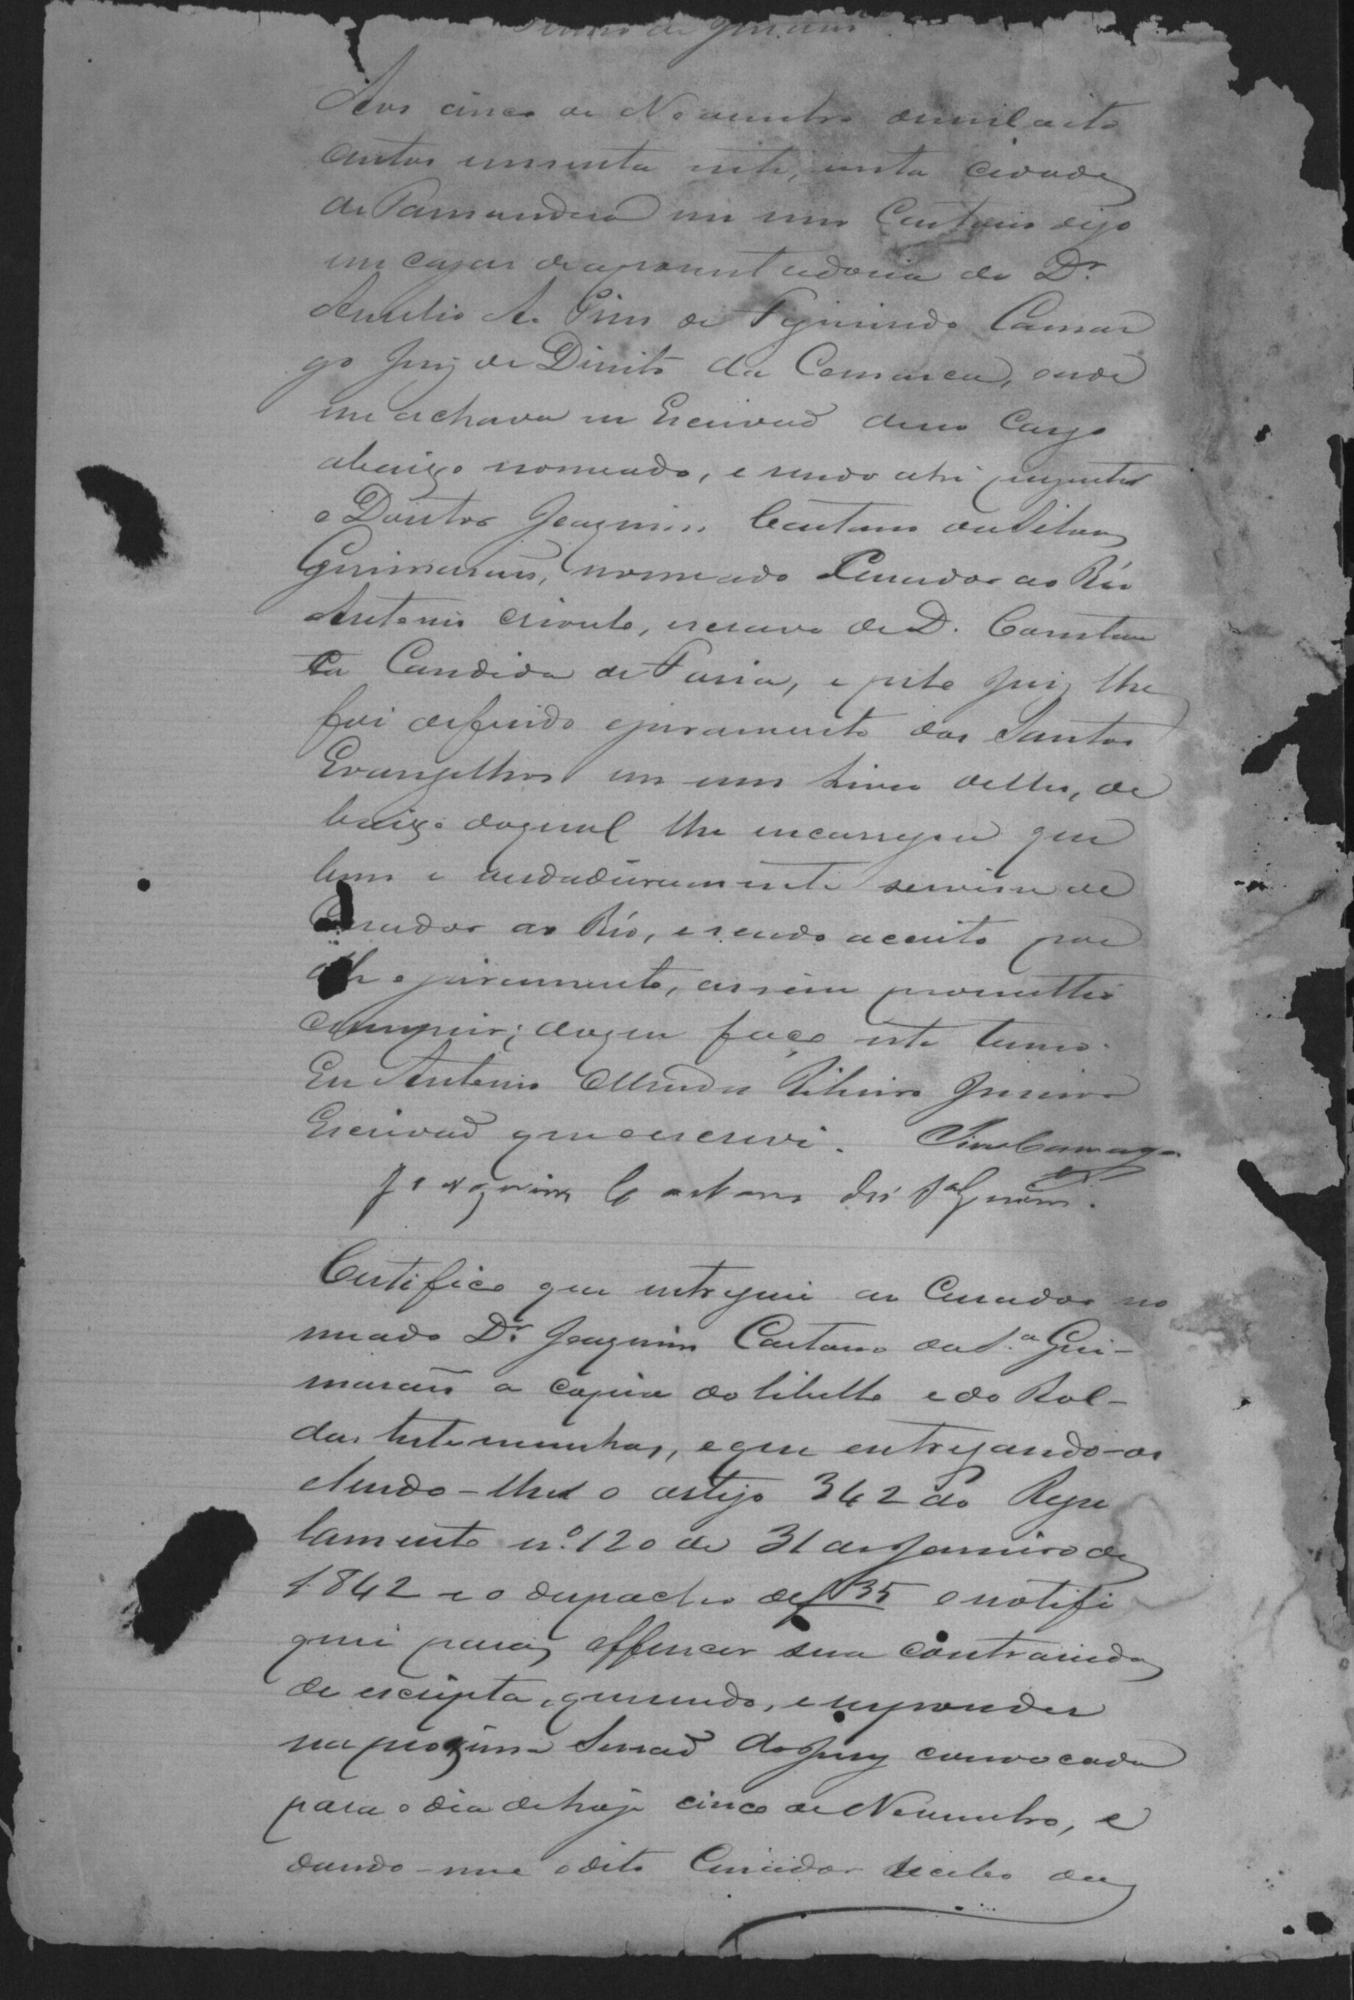 Termo de juramento
Aos cinco de Novembro de mil oito
centos sessenta e sete, nesta cidade
de Parnanderá em meu Cartorio digo
em casas de aposentadoria do Dr.
Aurelio A. Pires de Figueiredo Camar
go Juiz de Direito da Comarca, onde
me achava eu Escrivaõ de seu Cargo
abaixo nomeado, e sendo ahi prezente
o Doutor Joaquim Caetano da Silva
Guimarães, nomeado Curador ao Réo
Antonio crioulo, escravo de D. Constan
ca Candida de Faria, e pelo Juiz lhe
foi deferido o juramento dos Santos
Evangelhos em um livro delles, de
baixo do qual lhe encarregou que
bem e verdadeiramente servisse de
Curador ao Réo, e sendo aceito por
elle o juramento, assim prometteo
cumprir; do que faço este termo.
Eu Antonio Ribeiro Junior
Escrivaõ que o escrevi. Pires Camargo
Joaquim Caetano da S.ª Guim.es
Certifico que entreguei ao Curador no
meado Dr. Joaquim Caetano da S.ª Gui-
marães a copia do libello e do Rol
das testemunhas, e que entregando-os
lendo-lhe o artigo 342 do Regu
lamento n.º 120 de 31 de Janeiro de
1842 e o despacho de f 35 o notifi
quei para offerecer sua contrarieda
de escripta, querendo, e responder
na proxima Sessaõ do Jury convocada
para o dia de hoje cinco de Novembro, e
dando-me o dito Curador recibo deu